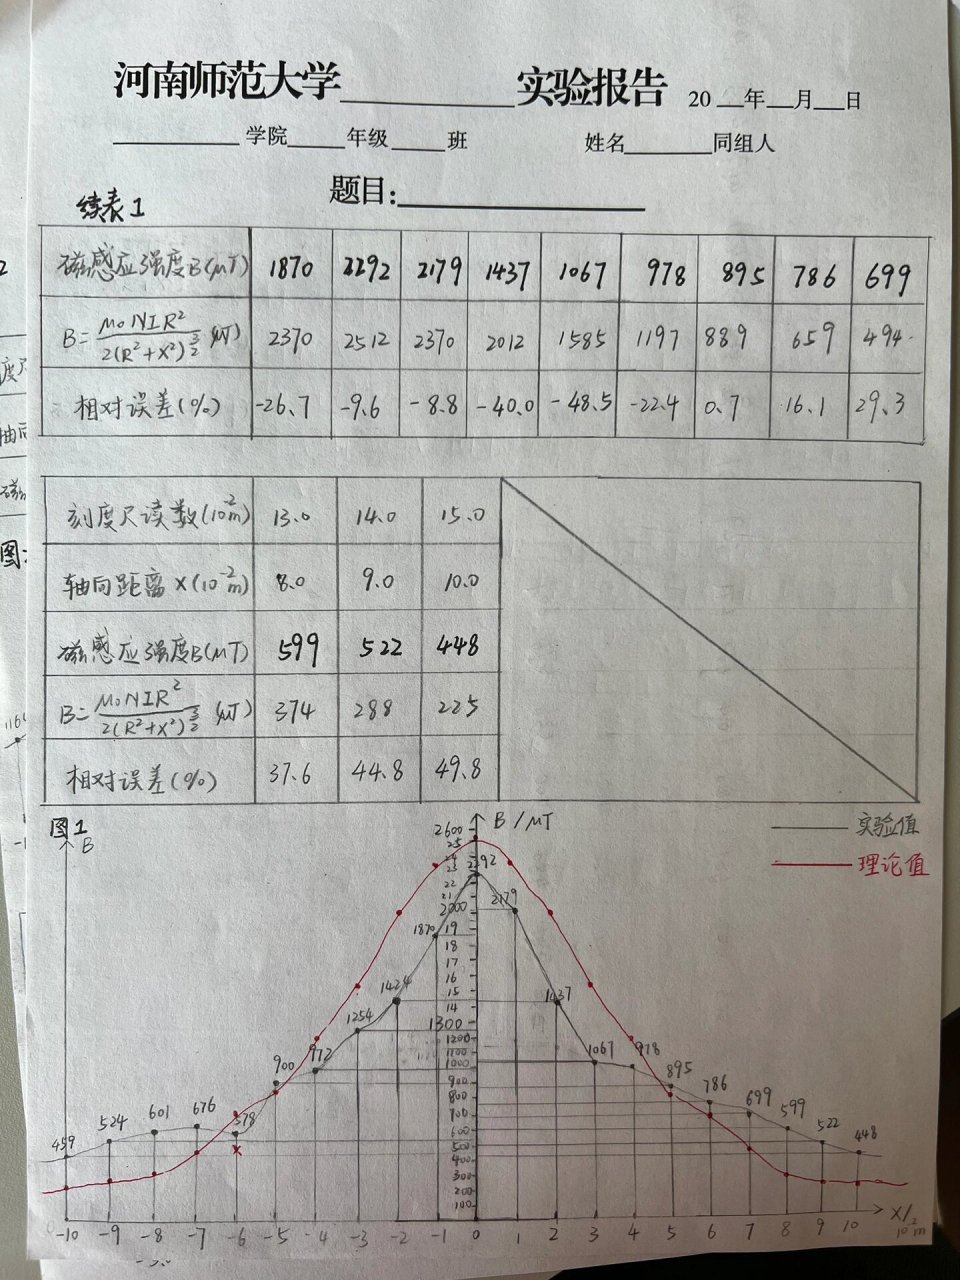 河南师范大学______实验报告 20__年__月__日
______学院______年级______班 姓名______同组人
题目:______
续表1
磁感应强度B(μT) 1870 2292 2179 1437 1067 978 895 786 699
B=μ0NIR²/2(R²+X²)^3/2 (μT) 2370 2512 2370 2012 1585 1197 889 659 494
相对误差(%) -26.7 -9.6 -8.8 -40.0 -48.5 -22.4 0.7 16.1 29.3
刻度尺读数(10⁻²m) 13.0 14.0 15.0
轴向距离X(10⁻²m) 8.0 9.0 10.0
磁感应强度B(μT) 599 522 448
B=μ0NIR²/2(R²+X²)^3/2 (μT) 374 288 225
相对误差(%) 37.6 44.8 49.8
图1
B
B/μT
实验值
理论值
2600
25
24
23
22
21
2000
19
18
17
16
15
14
1300
1200
1100
1000
900
800
700
600
500
400
300
200
100
459 524 601 676 578 900 972 1254 1424 1870 2292 2179 1437 1067 978 895 786 699 599 522 448
×
-10 -9 -8 -7 -6 -5 -4 -3 -2 -1 0 1 2 3 4 5 6 7 8 9 10
X/10⁻²m